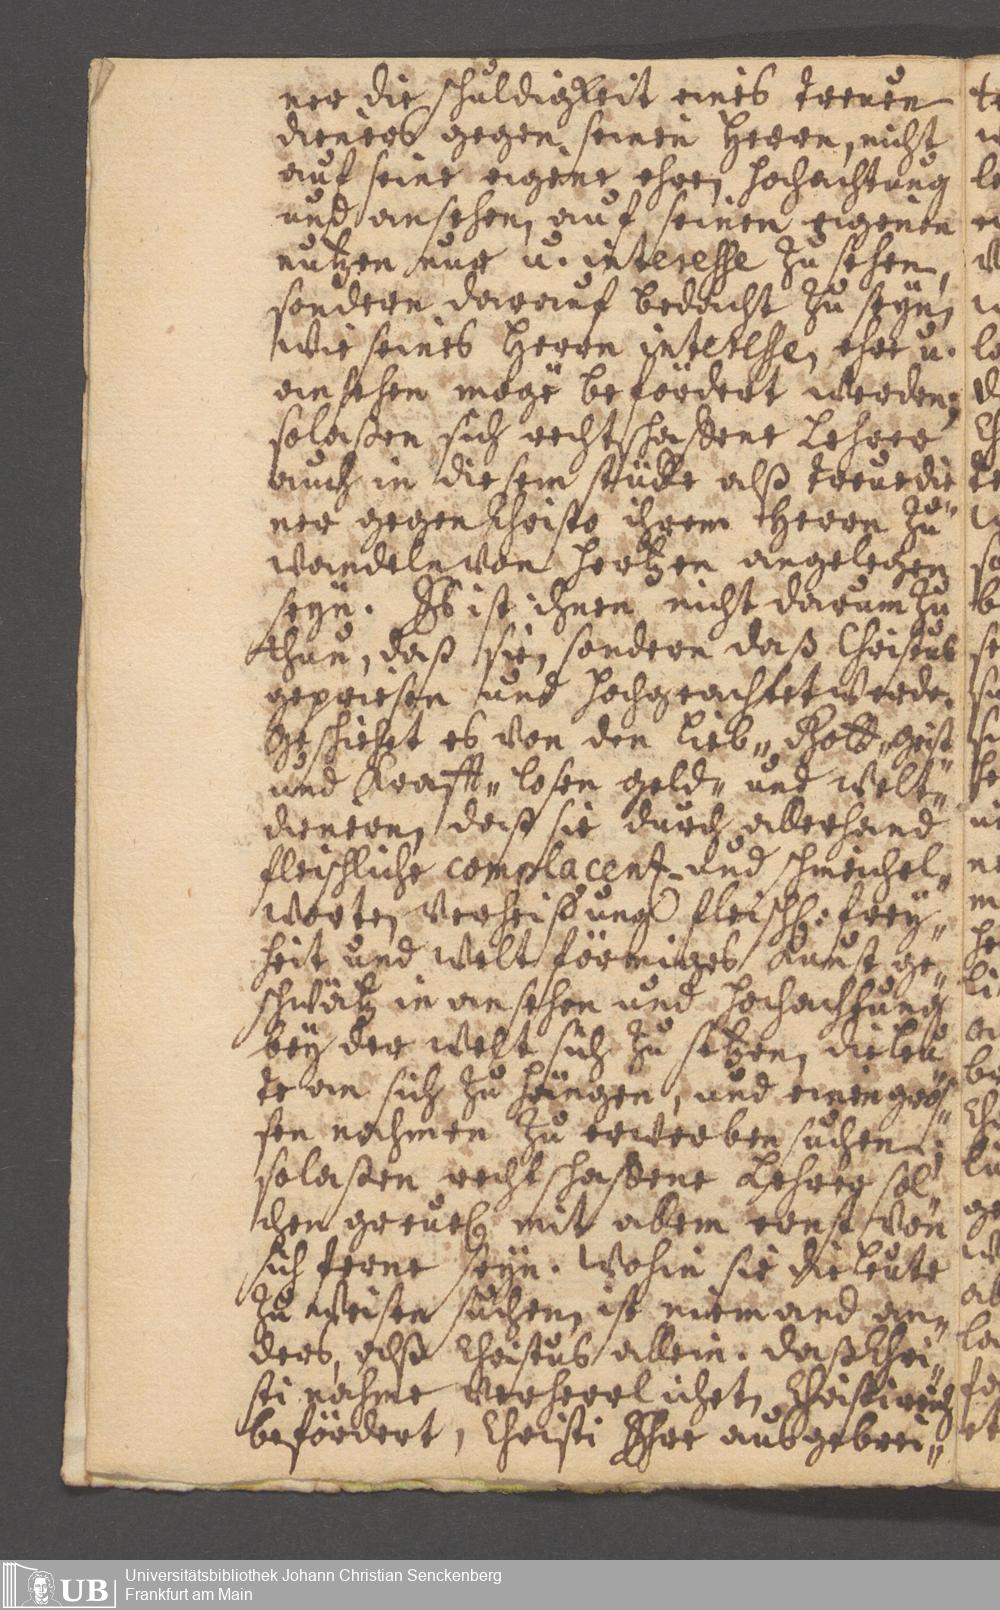 ner die schuldigkeit eines treuen
dieners gegen seinen Herrn, nicht
auf seine eigene ehre, hochachtung
und ansehen, auf seinen eigenen
nutzen nur u. interesse zu sehen,
sondern darauf bedacht zu seyn,
wie seines Herrn interesse, ehre u.
ansehen möge befördert werden;
so laßen sich rechtschaffene Lehrer
auch in diesem stücke alß treue die
ner gegen Christo ihrem Herrn zu
wandeln von hertzen angelegen
seyn. Es ist ihnen nicht darum zu
thun, daß sie, sondern daß Christus
gepriesen und hochgeachtet werde.
Geschiehet es von den lieb„ Gott„ geist„
und Krafft„ losen geld„ und welt„
dienern, daß sie durch allerhand
fleischliche complacent- und schmeichel„
worte, verheißung fleischl. frey„
heit und welt förmiges Kunst ge„
schwätz in ansehen und hochachtung
bey der welt sich zu setzen, die leu„
te an sich zu hängen, und einen gros„
sen nahmen zu erwerben suchen;
so laßen rechtschaffene Lehrer sol„
chen greuel mit allem ernst von
sich ferne seyn. Wohin sie die leute
zu weisen suchen, ist niemand an„
ders, alß Christus allein. daß Chri„
sti nahme verherrlichet, Christi reich
befördert, Christi Ehre ausgebrei„
UB
Universitätsbibliothek Johann Christian Senckenberg
Frankfurt am Main